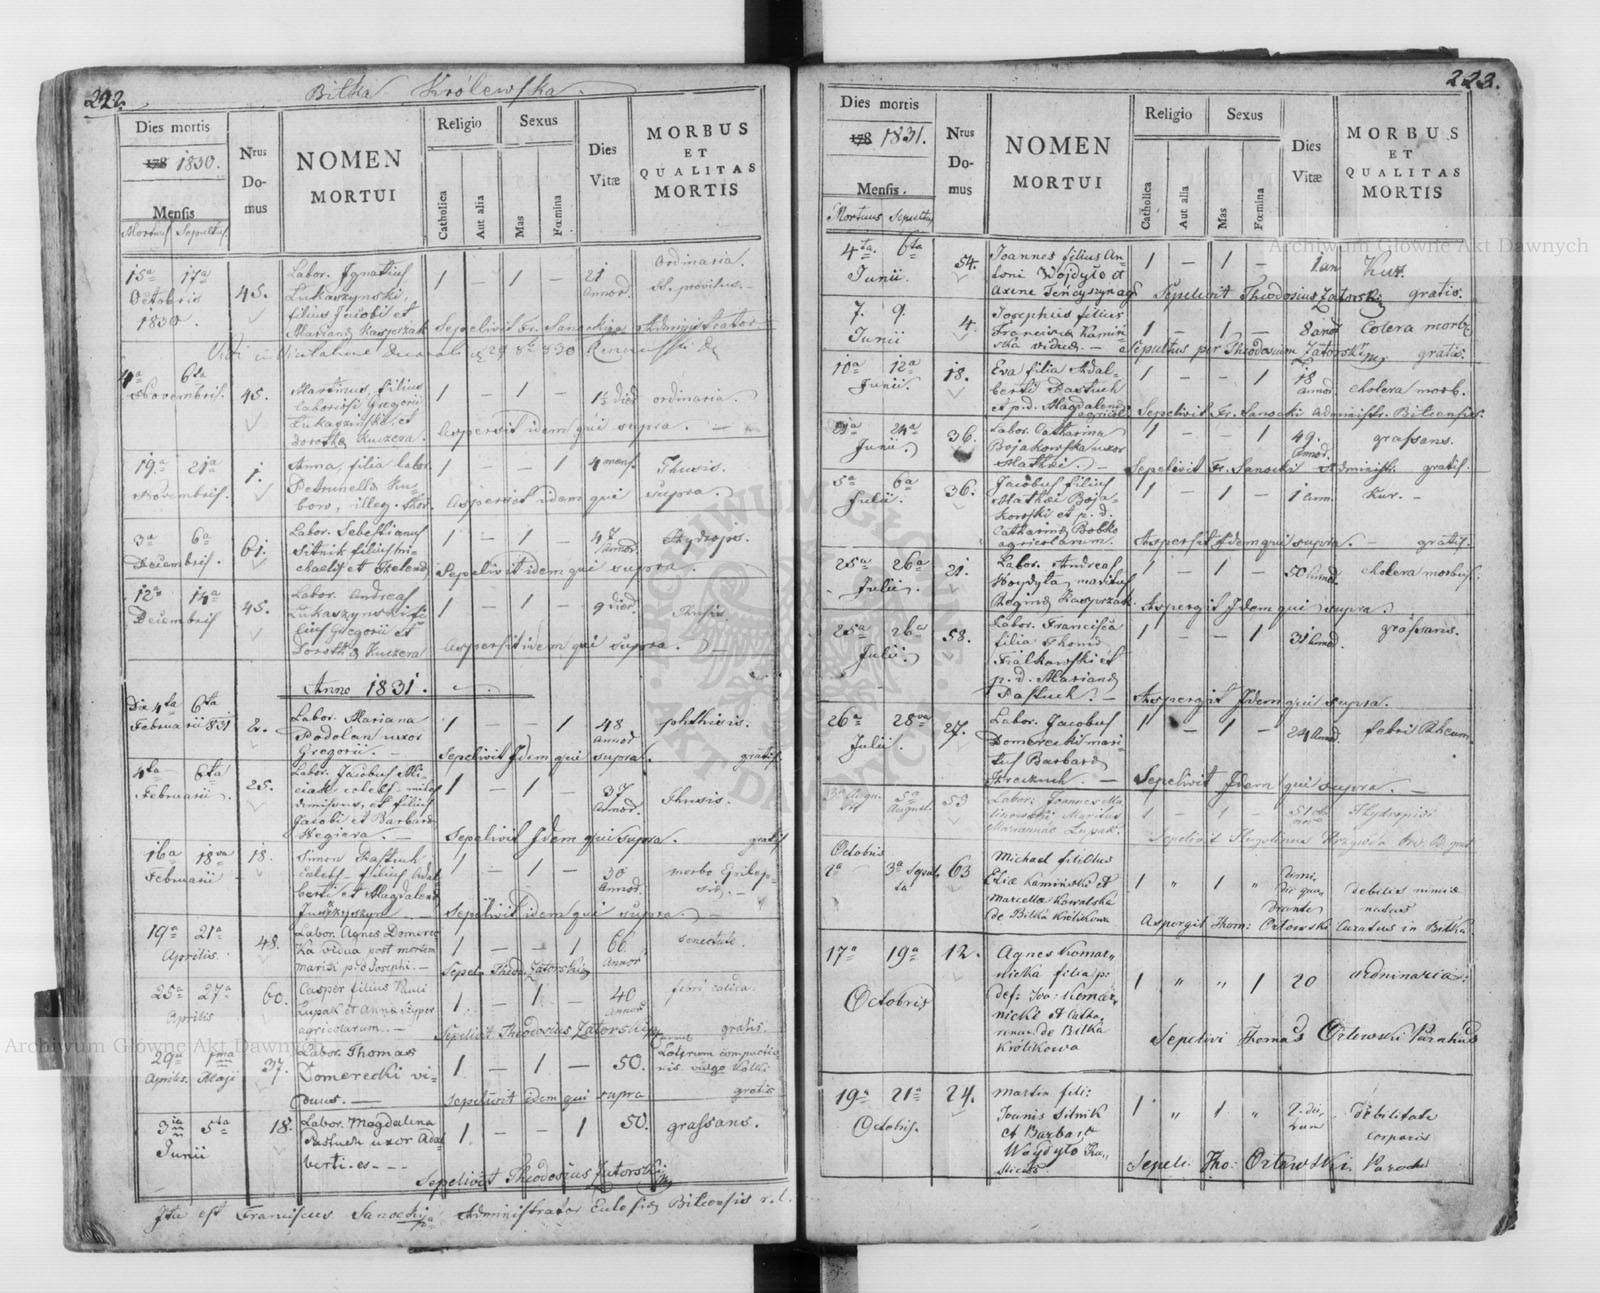 222.
Bilka Królewska.
Dies mortis
178 1830.
Mensis
Mortuus Sepultus
Nrus
Do-
mus
NOMEN
MORTUI
Religio
Catholica
Aut alia
Sexus
Mas
Fœmina
Dies
Vitæ
MORBUS
ET
QUALITAS
MORTIS
15a 17a
Octobris
1830.
45.
Labor. Ignatius
Lukaszynski,
filius Jacobi et
Marianæ Kasprzak
1 — 1 — 21
Annor.
Ordinaria.
SS. provisus.
Sepelivit Fr. Sanocki Administrator
4a 6ta
Novembris.
45.
Martinus, filius
laboriosi Gregorii
Lukaszinski, et
Dorothæ Kuczera.
1 — 1 — 1½ dies
ordinaria.
Aspersit idem qui supra.
19a 21a
Novembris.
1.
Anna, filia labor.
Petrunella Ku-
bow, illeg. thor.
1 — — 1 4 mens.
Thusis.
Aspersit idem qui supra.
3a 6a
Decembris.
61.
Labor. Sebestianus
Sitnik filius Mi-
chaelis et Helenæ
1 — 1 — 47
Annor.
Hydrops.
Sepelivit idem qui supra.
12a 14a
Decembris
45.
Labor. Andreas
Lukaszynski fi-
lius Gregorii et
Dorothæ Kuczera
1 — 1 — 9 dies.
Thusis.
Aspersit idem qui supra.
Anno 1831.
Die 4ta 6ta
Februarii 831
2.
Labor. Mariana
Podolan uxor
Gregorii.
1 — — 1 48
Annor
phthisis.
Sepelivit Idem qui supra. gratis
4ta 6ta
Februarii.
25.
Labor. Jacobus Mi-
ciak, coelebs, miles
demissus, et filius
Jacobi et Barbaræ
Hegiera.
1 — 1 — 37
Annor.
Thusis.
Sepelivit Idem qui supra. gratis
16a 18va
Februarii
18.
Simon Pastuch
cælebs filius Adal
berti et Magdalenæ
1 — 1 — 30
Annor.
morbo Epilep-
Sepelivit idem qui supra.
19a 21a
Aprilis.
48.
Labor. Agnes Domerec
Ka vidua post mortem
mariti p:d Josephi.
1 — — 1 66.
Annor
senectute.
Sepel. Theod. Zatorski
25a 27a
Aprilis
60.
Casper filius Pauli
Lupak et Anna Szyper
agricolarum.
1 — 1 — 40
Annor
febri calica.
Sepelivit Theodosius Zatorski gratis
29a 1ma
Aprilis. Maji
37.
Labor. Thomas
Domerecki vi-
duus.
1 — 1 — 50.
vulgo Kołki
Sepelivit idem qui supra gratis
3tia 5ta
Junii
18.
Labor. Magdalena
Pastuch uxor Adal
berti es
1 — — 1 50.
grassans.
Sepelivit Theodosius Zatorski
Ita est Franciscus Sanocki Administrator Eclesiæ Bilcensis r. l.
223.
Dies mortis
178 1831.
Mensis.
Mortuus Sepultus
Nrus
Do-
mus
NOMEN
MORTUI
Religio
Catholica
Aut alia
Sexus
Mas
Fœmina
Dies
Vitæ
MORBUS
ET
QUALITAS
MORTIS
4ta. 6ta
Junii.
54.
Joannes filius An-
toni Wojdyło et
1 — 1 — 1. an
Kur.
Sepelivit Theodosius Zatorski gratis.
7. 9.
Junii
4.
Josephus filius
Francisca Kamin-
ska vidua.
1 — 1 — 8 anor
Colera morb.
Sepultus per Theodosium Zatorski gratis.
10a 12a
Junii.
18.
Eva filia Adal-
berti Pastuch
et p.d. Magdalenæ
1 — — 1 18
Annor.
cholera morb.
Sepelivit Fr. Sanocki Administr. Bilcensis.
24a
Junii
36.
Labor. Catharina
Bojakowska uxor
Mathei.
1 — — 1 49.
Annor.
grassans.
Sepelivit Fr. Sanocki Administr. gratis.
5a 6a
Julii.
36.
Jacobus filius
Mathæi Boja-
kowski et p.d.
Catharinæ Bobko
agricolarum.
1 — 1 — 1 Ann.
Kur.
Aspersit Idem qui supra. gratis.
25a 26a
Julii.
21.
Labor. Andreas
Woydyla maritus
Reginæ Kasprzak
1 — 1 — 50 Annor.
cholera morbus.
Aspergit Idem qui supra.
25a 26a
Julii.
58.
Labor. Francisca
filia Thomæ
Fialkowski et
p. d. Marianæ
Pastuch.
1 — — 1 31 Annor.
grassans.
Aspergit Idem qui supra.
26a 28va
Julii.
27.
Labor. Jacobus
Domerecki mari-
tus Barbaræ
1 — 1 — 24 Annor.
febris Rheum.
Sepelivit Idem qui supra.
5a
August.
53
Labor: Joannes Ma
linowski Maritus
Mariannae Lupak.
1 — 1 — 51
Hydropisi
Octobris
2a 3a Sepul
ta
63
Michael filius
Eliæ Kamiński et
Marcella Kowalska
de Bilka Królikowa
1 „ 1 „
debilis nimie
natus
Aspergit Thom: Orłowski Curatus in Bilka
17a 19a
Octobris
12.
Agnes Komar„
nicka filia p:
def: Joa: Komar„
nicki et Catha„
rinae de Bilka
Królikowa
1 „ „ 1 20
ordninaria.
Sepelivi Thomas Orłowski Parochus
19a 21a
Octobris.
24.
Martin fili:
Joanis Sitnik
et Barbara
Woydyło Ru„
1 „ 1 „ 2. di„
debilitate
corporis
Sepeli. Tho: Orłowski. Paroch
Archiwum Główne Akt Dawnych
Archiwum Główne Akt Dawnych
ARCHIWUM GŁÓWNE AKT DAWNYCH